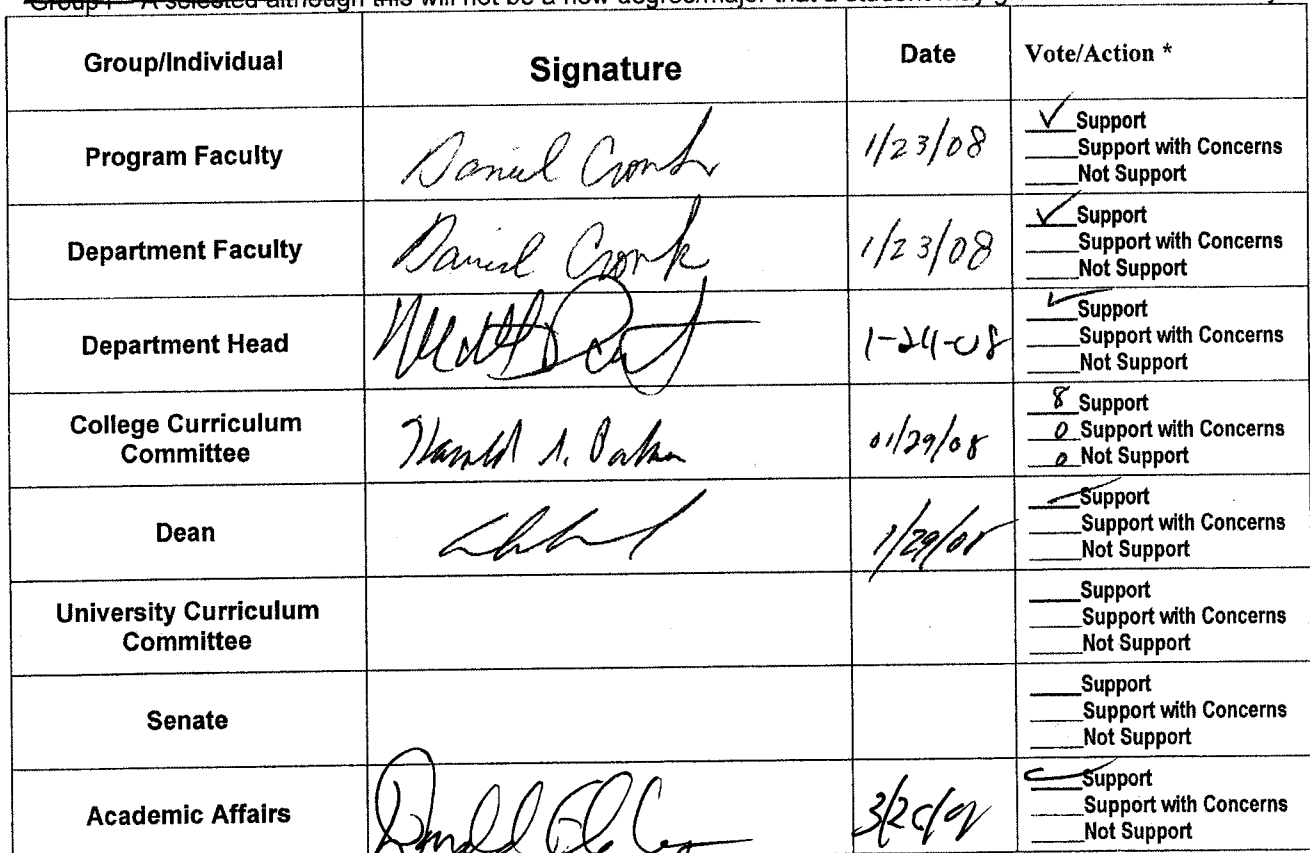 Group I - A selected although this will not be a new degree/major that a student may
Group/Individual Signature Date Vote/Action *
Program Faculty Daniel Cronk 1/23/08
✓ Support
Support with Concerns
Not Support
Department Faculty Daniel Cronk 1/23/08
✓ Support
Support with Concerns
Not Support
Department Head
✓ Support
Support with Concerns
Not Support
College Curriculum
Committee
01/29/08
8 Support
0 Support with Concerns
0 Not Support
Dean 1/29/08
✓ Support
Support with Concerns
Not Support
University Curriculum
Committee
Support
Support with Concerns
Not Support
Senate
Support
Support with Concerns
Not Support
Academic Affairs
✓ Support
Support with Concerns
Not Support